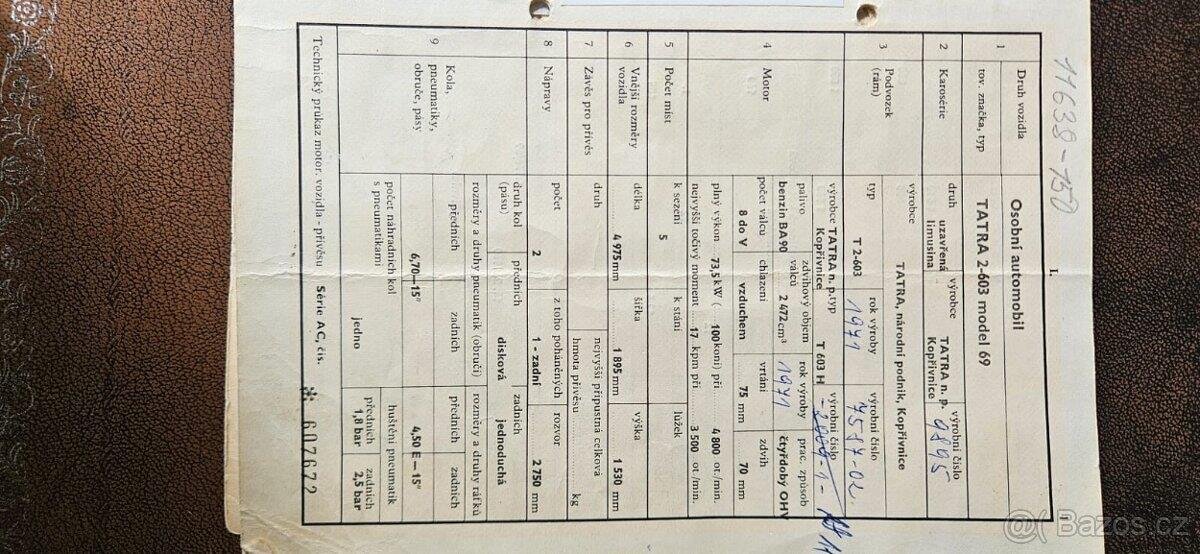 11638-150
I.
1 Druh vozidla Osobní automobil
tov. značka, typ TATRA 2-603 model 69
2 Karosérie druh uzavřená limusina výrobce TATRA n. p. Kopřivnice výrobní číslo 9895
3 Podvozek (rám) výrobce TATRA, národní podnik, Kopřivnice
typ T 2-603 rok výroby 1971 výrobní číslo 7587-02
4 Motor výrobce TATRA n. p. Kopřivnice typ T 603 H výrobní číslo
palivo benzin BA 90 zdvihový objem válců 2 472 cm³ rok výroby 1971 prac. způsob čtyřdobý OHV
počet válcu 8 do V chlazení vzduchem vrtání 75 mm zdvih 70 mm
plný výkon 73,5 kW ( 100 koní) při 4 800 ot./min.
nejvyšší točivý moment 17 kpm při 3 500 ot./min.
5 Počet míst k sezení 5 k stání lůžek
6 Vnější rozměry vozidla délka 4 975 mm šířka 1 895 mm výška 1 530 mm
7 Závěs pro přívěs druh nejvyšší přípustná celková hmota přívěsu kg
8 Nápravy počet 2 z toho poháněných 1 - zadní rozvor 2 750 mm
9 Kola, pneumatiky, obruče, pásy druh kol (pásu) předních disková zadních jednoduchá
rozměry a druhy pneumatik (obručí) rozměry a druhy ráfků
předních 6,70—15" zadních předních 4,50 E—15" zadních
počet náhradních kol s pneumatikami jedno huštění pneumatik předních 1,8 bar zadních 2,5 bar
Technický průkaz motor. vozidla - přívěsu Série AC, čís. * 607672
@( Bazos.cz